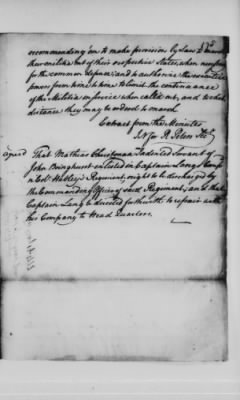 recommending 'em to make provision by Law to
them on like out of their respective States, when necessary
for the common defence; and to authorise the executive
power from time to time to limit the continuance
of the Militia in service when called out, and to what
distance they may be ordered to march.
Extract from the Minutes
R. Peters Secy
agreed That Mathias Christman Indented Servant of
John Bringhurst enlisted in Captain Lang's Company
in Colo. Hartley's Regiment, ought to be discharged by
the Commanding Officer of said Regiment; and that
Captain Lang be directed forthwith to repair with
his Company to Head Quarters.